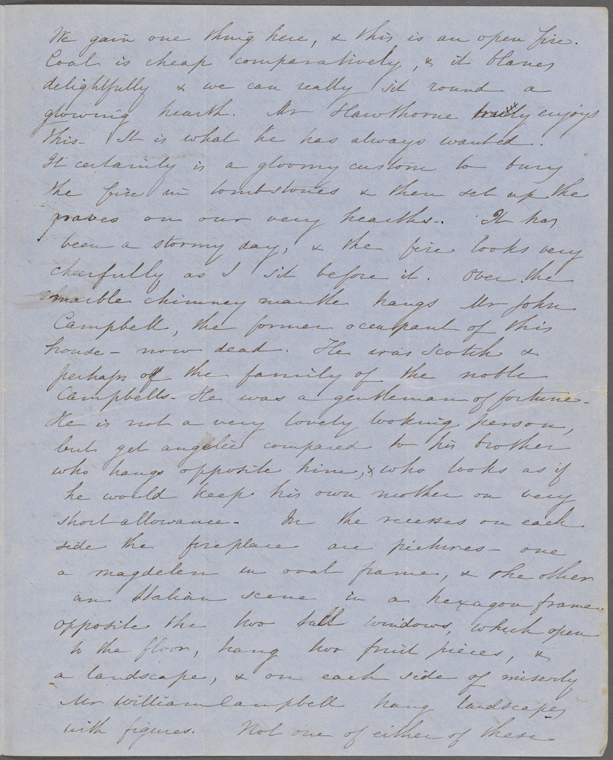 We gain one thing here, & this is an open fire.
Coal is cheap comparatively, & it blazes
delightfully & we can really sit round a
glowing hearth. Mr Hawthorne truly enjoys
this. It is what he has always wanted.
It certainly is a gloomy custom to bury
the fire in tombstones & then set up the
graves on our very hearths. It has
been a stormy day, & the fire looks very
cheerfully as I sit before it. Over the
marble chimney mantle hangs Mr John
Campbell, the former occupant of this
house - now dead. He was Scotch &
perhaps of the family of the noble
Campbells. He was a gentleman of fortune.
He is not a very lovely looking person,
but yet angelic compared to his brother
who hangs opposite him, & who looks as if
he would keep his own mother on very
short allowance. In the recesses on each
side the fireplace are pictures - one
a magdelen in oval frame, & the other
an Italian scene in a hexagon frame.
opposite the two tall windows, which open
to the floor, hang two fruit pieces, &
a landscape, & on each side of miserly
Mr William Campbell hang landscapes
with figures. Not one of either of these